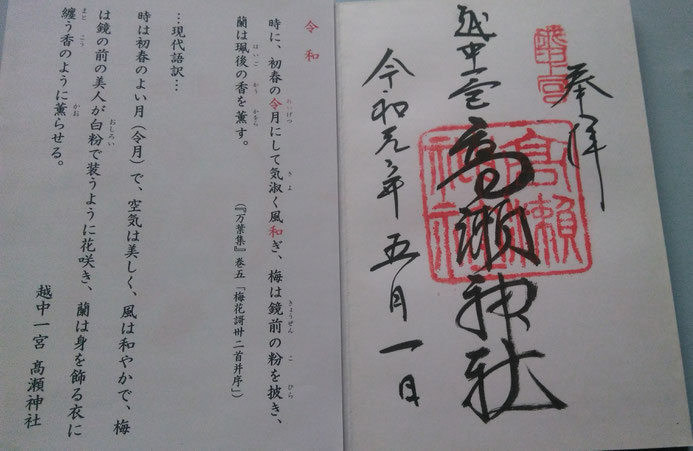 奉拝
越中一宮
高瀬神社
越中一宮 高瀬神社
令和元年五月一日
令和
れいげつ き よ きょうぜん こ ひら
時に、初春の令月にして気淑く風和ぎ、梅は鏡前の粉を披き、
はいご かう
蘭は珮後の香を薫す。
(『万葉集』巻五「梅花謌卅二首并序」)
…現代語訳…
時は初春のよい月(令月)で、空気は美しく、風は和やかで、梅
おしろい
は鏡の前の美人が白粉で装うように花咲き、蘭は身を飾る衣に
まと こう かお
纏う香のように薫らせる。
越中一宮 髙瀬神社